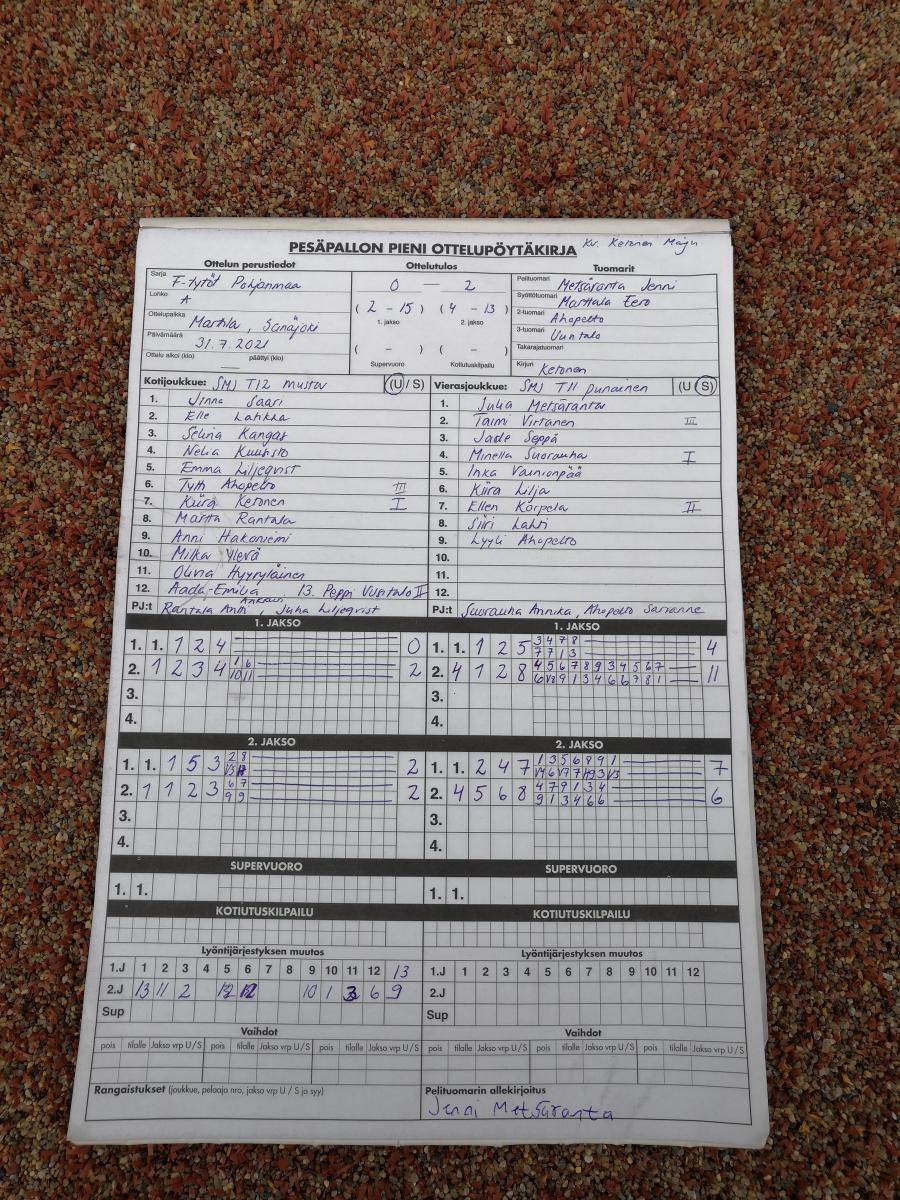 PESÄPALLON PIENI OTTELUPÖYTÄKIRJA Kv. Ketonen Maiju
Ottelun perustiedot
Sarja F-tytöt Pohjanmaa
Lohko A
Ottelupaikka Marttila, Seinäjoki
Päivämäärä 31.7.2021
Ottelu alkoi (klo) päättyi (klo)
Ottelutulos
0 — 2
(2 - 15) (4 - 13)
1. jakso 2. jakso
( - ) ( - )
Supervuoro Kotiutuskilpailu
Tuomarit
Pelituomari Metsäranta Jenni
Syöttötuomari Marttala Eero
2-tuomari Ahopelto
3-tuomari Uuntalo
Takarajatuomari
Kirjuri Ketonen
Kotijoukkue: SMJ T12 musta (U / S)
1. Jinna Saari
2. Elle Lahikka
3. Selina Kangas
4. Nelia Kuuhisto
5. Emma Liljeqvist
6. Tytti Ahopelto III
7. Kiira Ketonen I
8. Martta Rantala
9. Anni Hakoniemi
10. Milka Ylevä
11. Olivia Hyyryläinen
12. Aada-Emilia 13. Peppi Uuntalo II
PJ:t Rantala Antti, Juha Liljeqvist
Vierasjoukkue: SMJ T11 punainen (U / S)
1. Julia Metsäranta
2. Taimi Virtanen III
3. Jade Seppä
4. Minella Suorauha I
5. Inka Vainionpää
6. Kiira Lilja
7. Ellen Korpela II
8. Siiri Lahti
9. Lyyli Ahopelto
10.
11.
12.
PJ:t Suorauha Annika, Ahopelto Sarianne
1. JAKSO
1. 1. 1 2 4 0
2. 1 2 3 4 1 6 2
10 11
3.
4.
1. JAKSO
1. 1. 1 2 5 3 4 7 8 4
7 7 1 3
2. 4 1 2 8 4 5 6 7 8 9 3 4 5 6 7 11
3.
4.
2. JAKSO
1. 1. 1 5 3 2 8 2
2. 1 1 2 3 6 7 2
9 9
3.
4.
2. JAKSO
1. 1. 2 4 7 1 3 5 6 8 9 1 7
2. 4 5 6 8 4 7 9 1 3 4 6
9 1 3 4 6 6
3.
4.
SUPERVUORO
1. 1.
SUPERVUORO
1. 1.
KOTIUTUSKILPAILU
KOTIUTUSKILPAILU
Lyöntijärjestyksen muutos
1.J 1 2 3 4 5 6 7 8 9 10 11 12 13
2.J 13 11 2 12 10 1 3 6 9
Sup
Lyöntijärjestyksen muutos
1.J 1 2 3 4 5 6 7 8 9 10 11 12
2.J
Sup
Vaihdot
pois tilalle Jakso vrp U/S pois tilalle Jakso vrp U/S pois tilalle Jakso vrp U/S
Vaihdot
pois tilalle Jakso vrp U/S pois tilalle Jakso vrp U/S pois tilalle Jakso vrp U/S
Rangaistukset (joukkue, pelaaja nro, jakso vrp U / S ja syy)
Pelituomarin allekirjoitus
Jenni Metsäranta